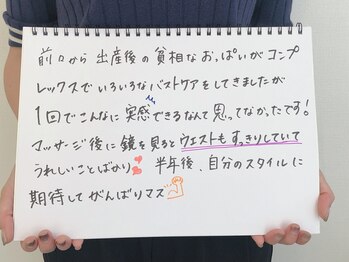 前々から出産後の貧相なおっぱいがコンプ
レックスでいろいろなバストケアをしてきましたが
1回でこんなに実感できるなんて思ってなかったです!
マッサージ後に鏡を見るとウエストもすっきりしていて
うれしいことばかり 半年後、自分のスタイルに
期待してがんばりマス